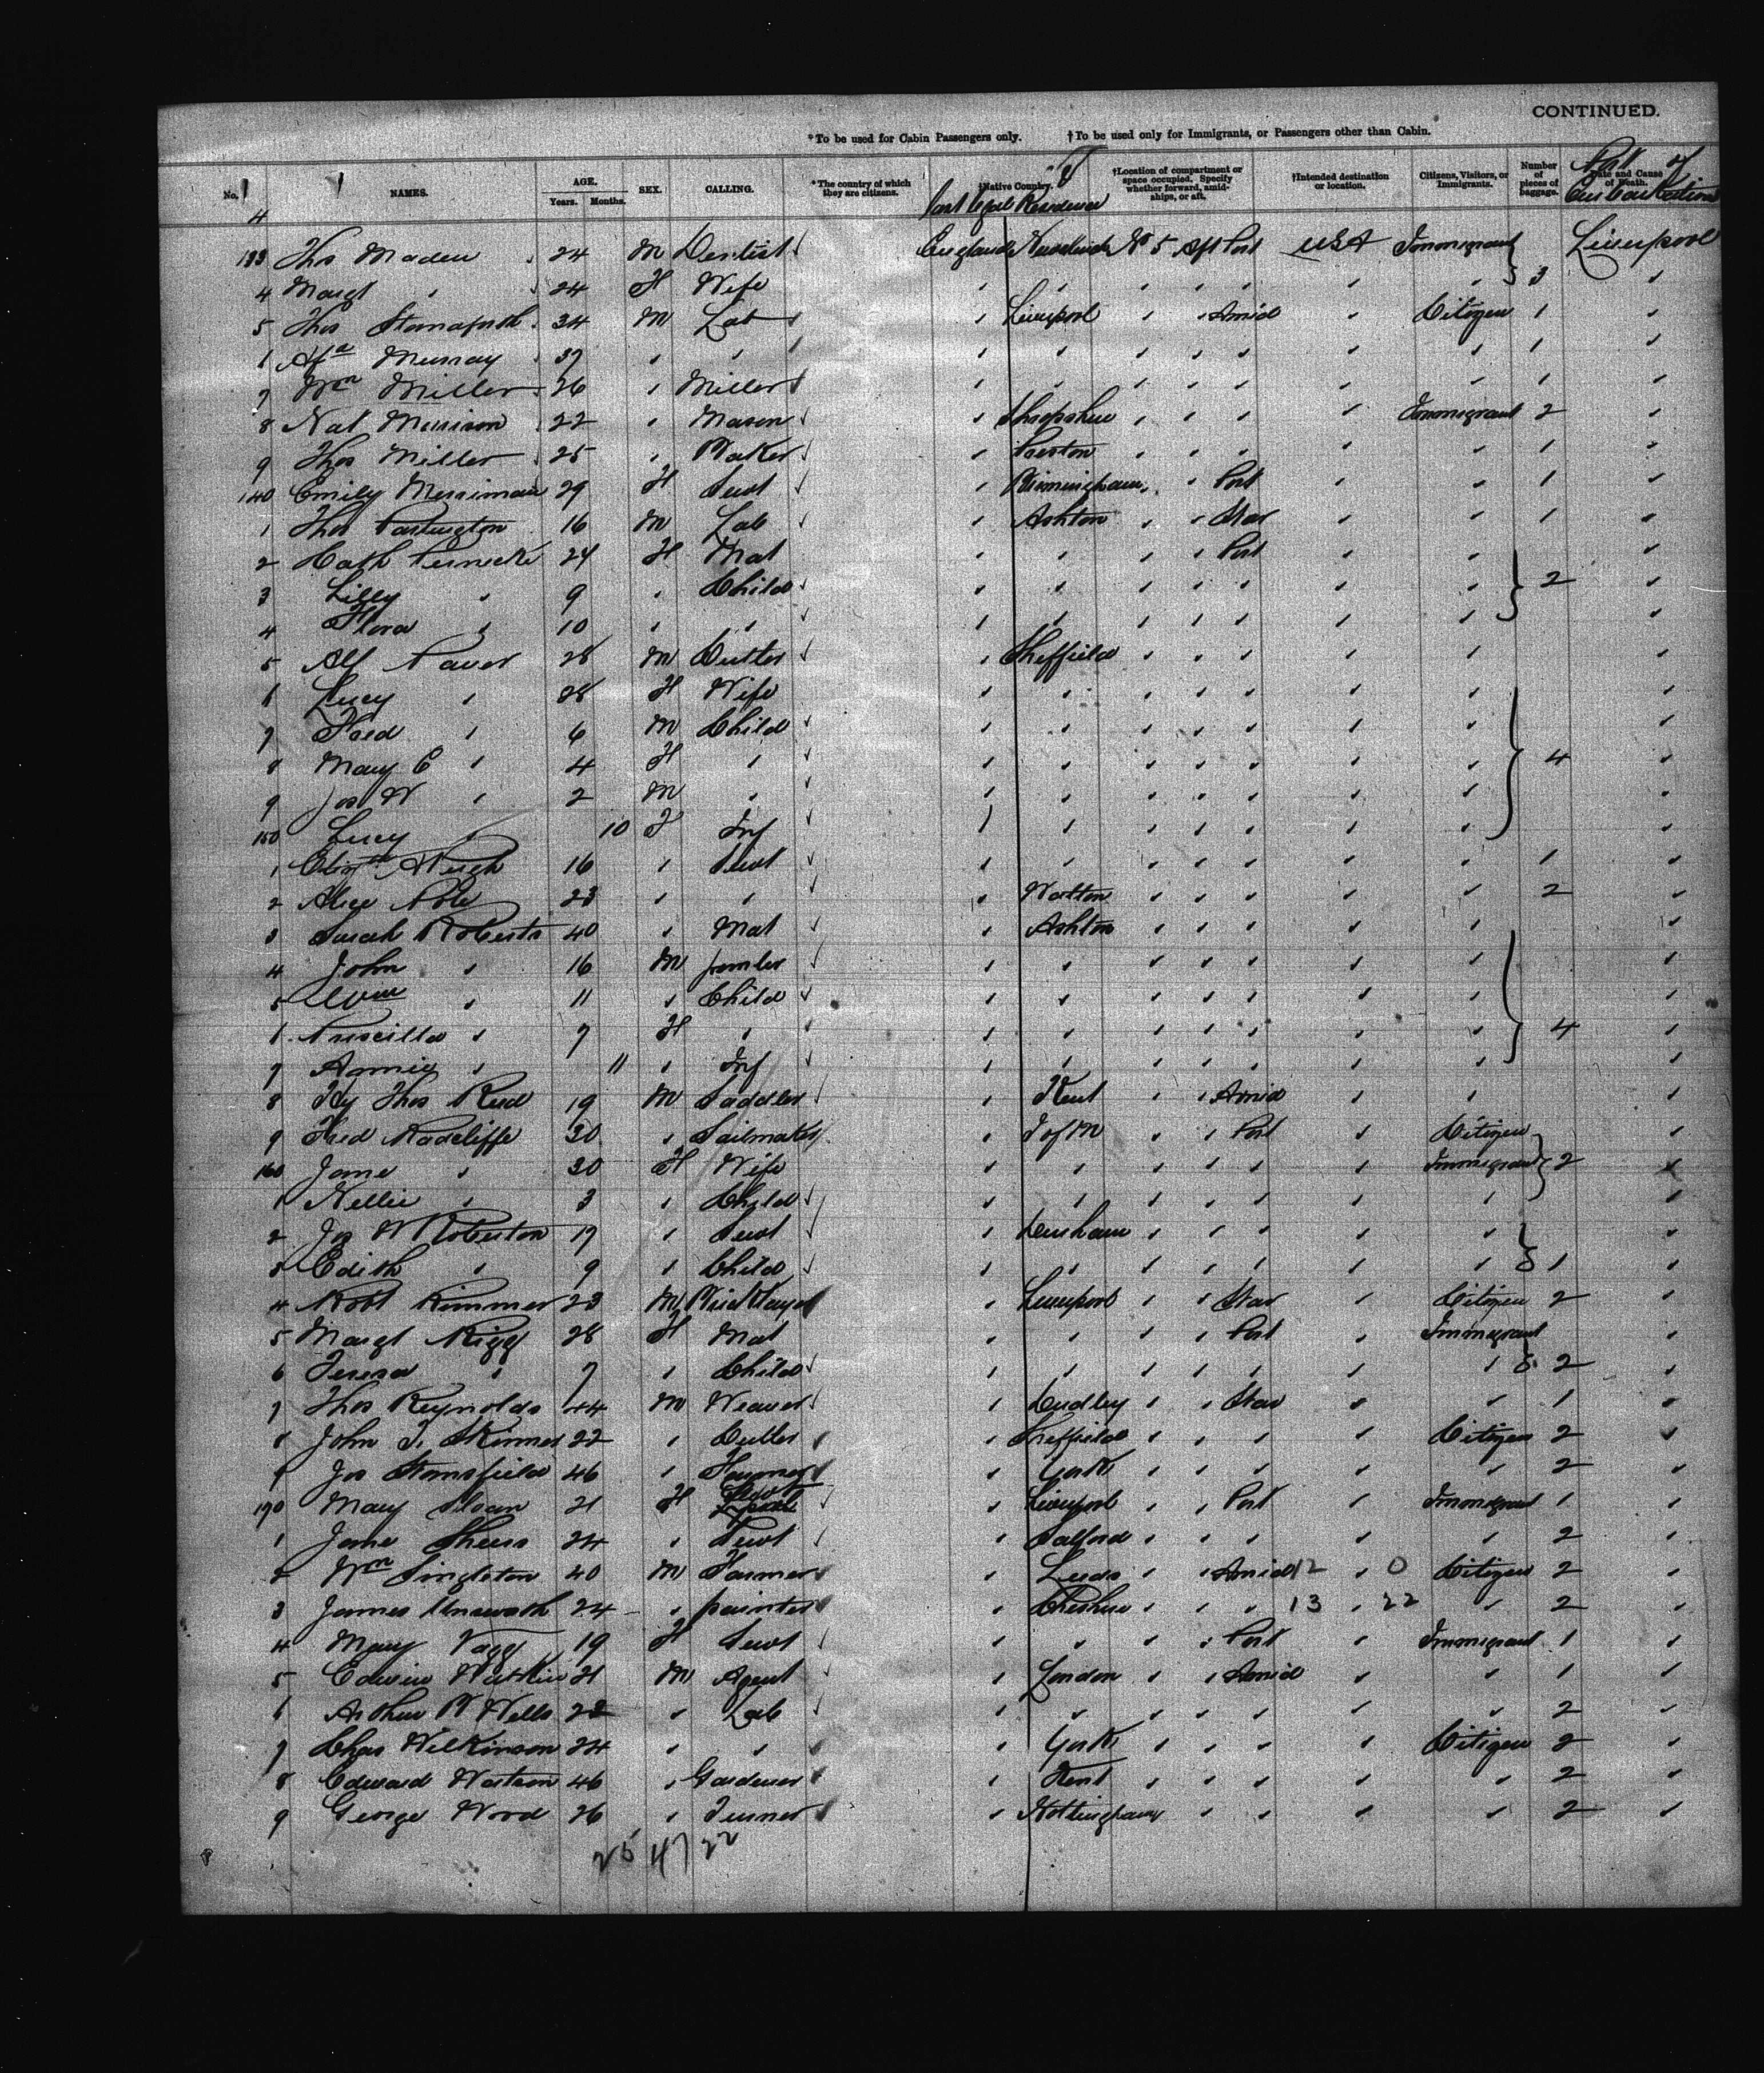 CONTINUED.
*To be used for Cabin Passengers only. †To be used only for Immigrants, or Passengers other than Cabin.
No. NAMES. AGE. Years. Months. SEX. CALLING. *The country of which they are citizens. †Native Country. Last legal Residence †Location of compartment or space occupied. Specify whether forward, amidships, or aft. †Intended destination or location. Citizens, Visitors, or Immigrants. Number of pieces of baggage. Date and Cause of Death. Port of Embarkation
4
133 Thos Maden 24 M Dentist England No 5 Aft Port USA Immigrant Liverpool
4 Margt " 24 F Wife " " " " " " " 3 "
5 Thos 34 M Lab " Liverpool " " Amid " Citizen 1 "
6 Murray 37 " " " " " " " " " 1 "
7 Wm Miller 26 " Miller " " " " " " " 1 "
8 Nat Morrison 22 " Mason " Shropshire " " " " Immigrant 2 "
9 Thos Miller 25 " Baker " Preston " " " " " 1 "
140 Emily Merriman 29 F Servt " Birmingham " " Port " " 1 "
1 Thos Partington 16 M Lab " Ashton " " Star " " 1 "
2 Cath 24 F Mat " " " " Port " " "
3 Lilly " 9 " Child " " " " " " " 2 "
4 Flora " 10 " " " " " " " " " "
5 Alf 28 M Cutler " Sheffield " " " " " "
6 Lucy " 28 F Wife " " " " " " " "
7 Fred " 6 M Child " " " " " " " "
8 Mary E " 4 F " " " " " " " " 4 "
9 Jos W " 2 M " " " " " " " " "
150 Lucy 10 F Inf " " " " " " " "
1 16 " Servt " " " " " " " 1 "
2 Alice 23 " " " Walton " " " " " 2 "
3 Sarah Roberts 40 " Mat " Ashton " " " " " "
4 John " 16 M " " " " " " " "
5 Wm " 11 " Child " " " " " " " "
6 Priscilla " 7 F " " " " " " " " 4 "
7 Annie " 11 " Inf " " " " " " " "
8 Hy Thos Reid 19 M Saddler " Kent " " Amid " " "
9 Fred Radcliffe 30 " Sailmaker " I of M " " Port " Citizen "
160 Jane " 30 F Wife " " " " " " Immigrant 2 "
1 Nellie " 3 " Child " " " " " " " "
2 Jos W Roberton 17 " Servt " Durham " " " " " "
3 Edith " 9 " Child " " " " " " " 1 "
4 Robt Rimmer 23 M Bricklayer " Liverpool " " Star " Citizen 2 "
5 Margt Rigg 28 F Mat " " " " Port " Immigrant "
6 Teresa " 7 " Child " " " " " " " 2 "
7 Thos Reynolds 44 M Weaver " Dudley " " Star " " 1 "
8 John T. Skinner 22 " Cutler " Sheffield " " " " Citizen 2 "
9 Jos Stansfield 46 " Farmer " York " " " " " 2 "
170 Mary Sloan 21 F Servt " Liverpool " " Port " Immigrant 1 "
1 Jane 24 " Servt " Salford " " " " " 2 "
2 Wm Singleton 40 M Farmer " Leeds " " Amid 12 " 0 Citizen 2 "
3 James Unsworth 24 " painter " Cheshire " " " 13 " 22 " 2 "
4 Mary Vagg 19 F Servt " " " " Port " Immigrant 1 "
5 Edwin Watkin 21 M Agent " London " " Amid " " 1 "
6 Arthur W Wells 22 " Lab " " " " " " " 2 "
7 Chas Wilkinson 24 " " " York " " " " Citizen 2 "
8 Edward Watson 46 " Gardener " Kent " " " " " 2 "
9 George Wood 26 " Turner " Nottingham " " " " 2 "
25 47 22